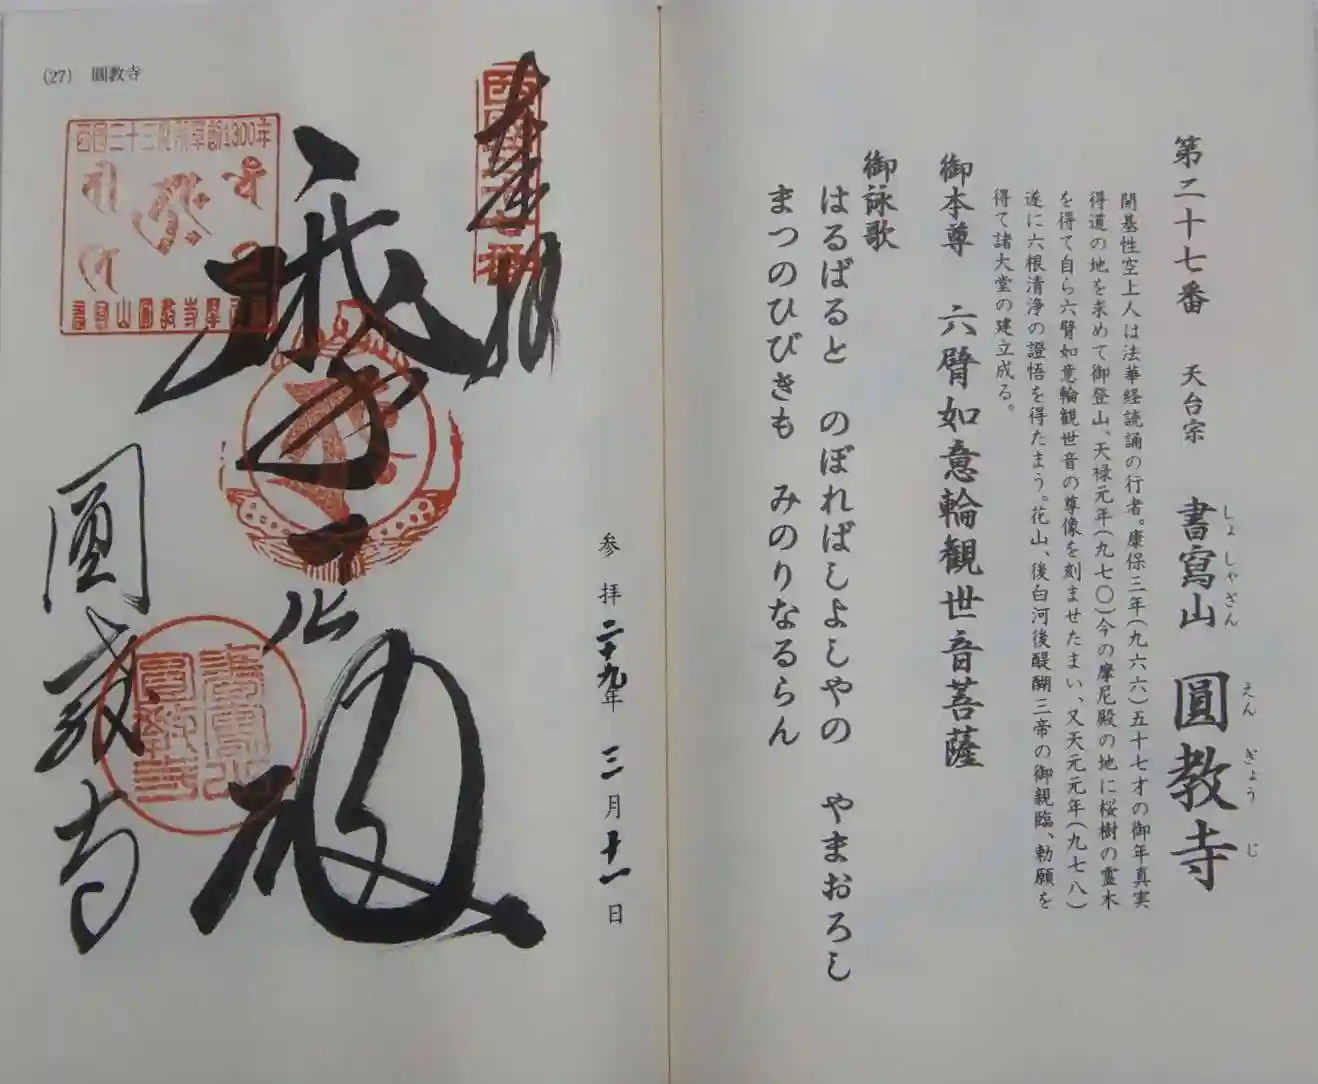 第二十七番 天台宗 書寫山 圓教寺
しょ しゃざん えん ぎょう じ
開基性空上人は法華経読誦の行者。康保三年(九六六)五十七才の御年真実
得道の地を求めて御登山、天禄元年(九七〇)今の摩尼殿の地に桜樹の霊木
を得て自ら六臂如意輪観世音の尊像を刻ませたまい、又天元元年(九七八)
遂に六根清浄の證悟を得たまう。花山、後白河後醍醐三帝の御親臨、勅願を
得て諸大堂の建立成る。
御本尊 六臂如意輪観世音菩薩
御詠歌
はるばると のぼればしよしやの やまおろし
まつのひびきも みのりなるらん
(27) 圓教寺
奉拝
参拝二十九年 三月十一日
摩尼殿
圓教寺
西国三十三所草創1300年